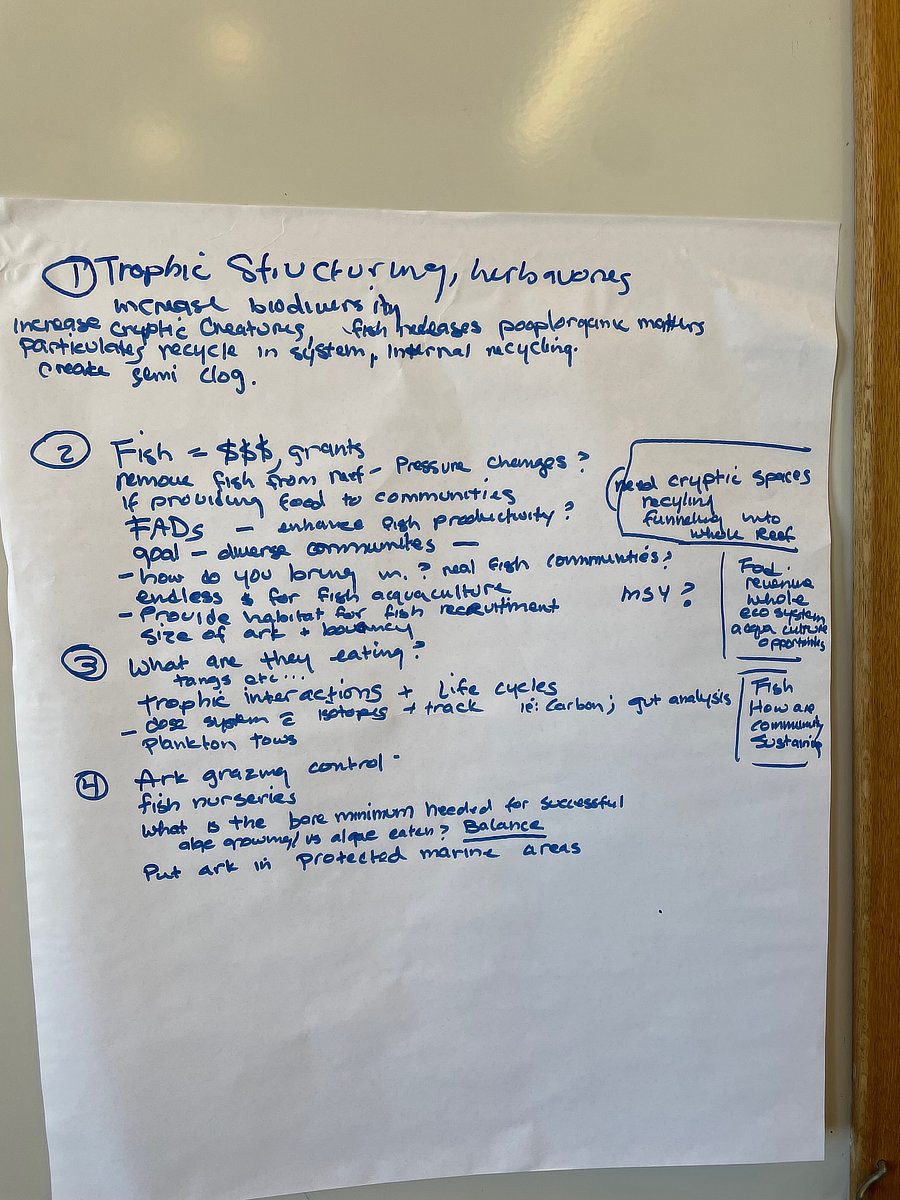 ① Trophic Structuring, herbavores
increase biodiversity
increase cryptic creatures, fish releases poop/organic matters
particulates recycle in system, internal recycling.
create semi clog.
② Fish = $$$, grants
remove fish from reef - Pressure changes?
if providing food to communities
FADs - enhance fish productivity?
goal - diverse communites -
- how do you bring in.? real fish communties?
endless $ for fish acquaculture
- Provide habitat for fish recruitment
size of ark + bouancy
MSY?
need cryptic spaces
recyling
funneling into
whole Reef
Food.
revenue
whole
eco system
acqua culture
opportnities
③ What are they eating?
tangs etc...
trophic interactions + Life cycles
- dose system c̄ isotopes + track ie: Carbon; gut analysis
Plankton tows
Fish
How are
community
Sustaining
④ Ark grazing control
fish nurseries
What is the bare minimum needed for successful
alge growing/ vs algae eaten? Balance
Put ark in protected marine areas